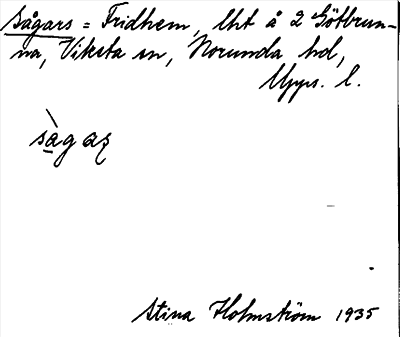 Sågars = Fridhem, lht å 2 Götbrun-
na, Viksta sn, Norunda hd,
Upps. l.
sàgaʂ
Stina Holmström 1935